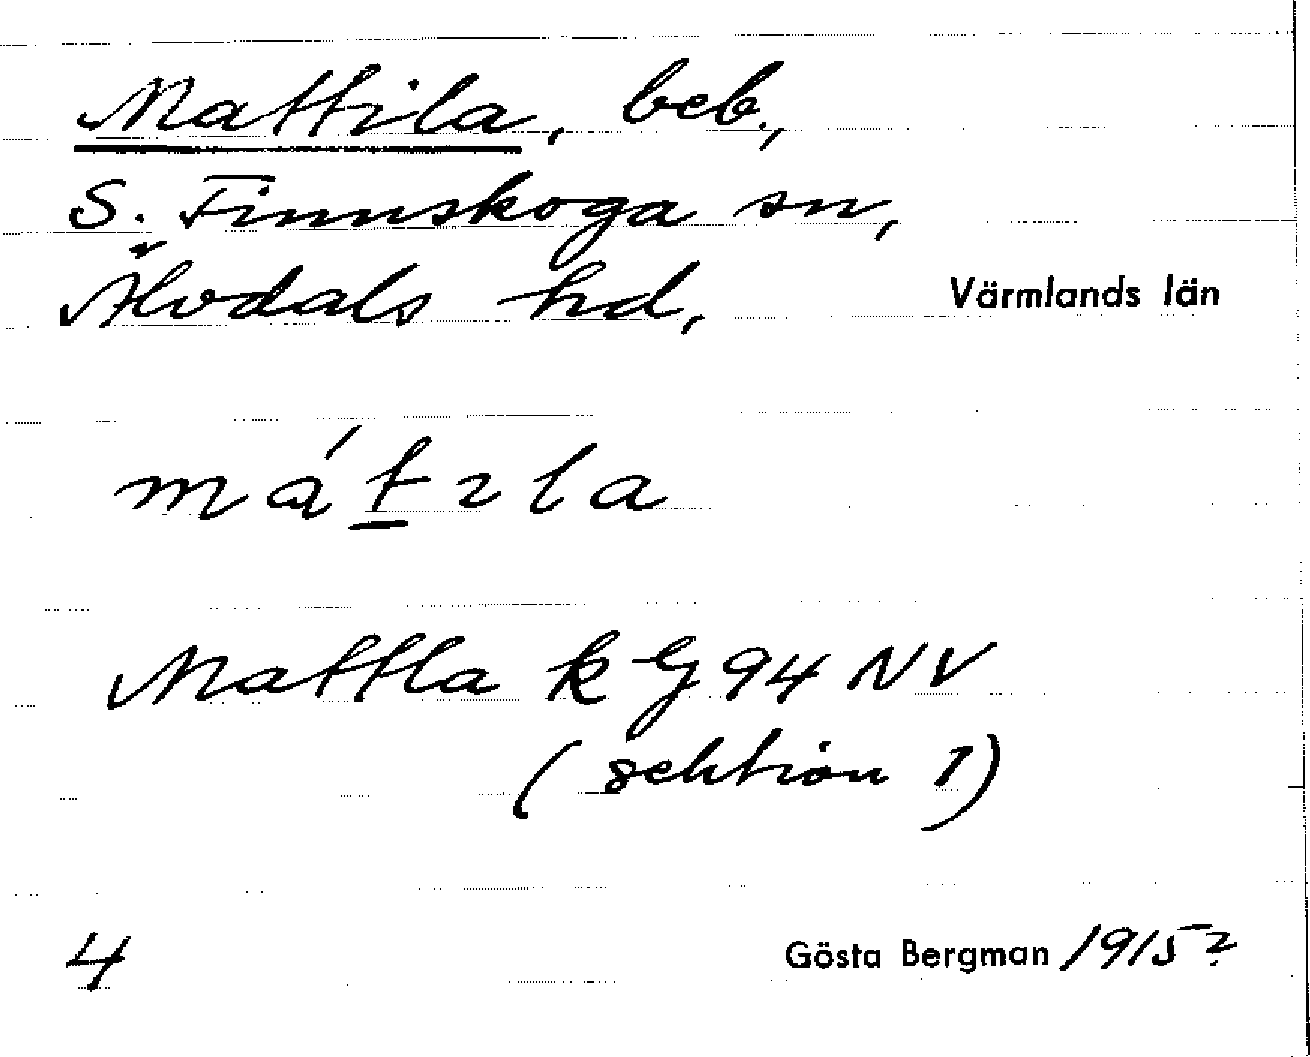 Mattila, beb.,
S. Finnskoga sn,
Älvdals hd, Värmlands län
mátıla
Mattla k G 94 NV
(sektion 1)
4 Gösta Bergman 1915?